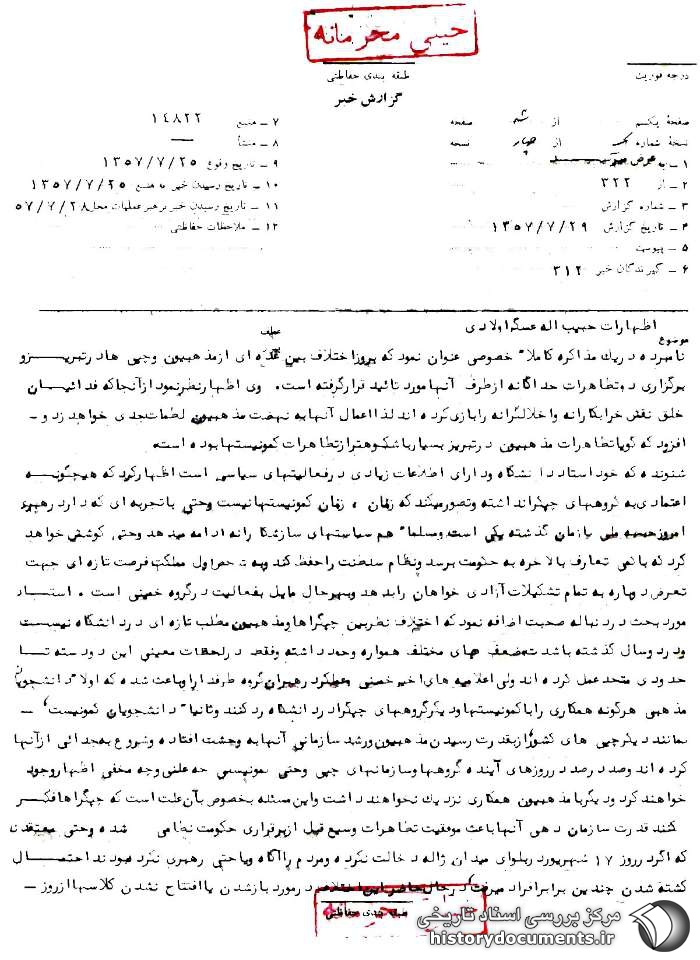 خیلی محرمانه
درجه فوریت
طبقه بندی حفاظتی
گزارش خبر
صفحهٔ یکم از صفحه
نسخهٔ شماره از چهار نسخه
۱ ـ به عرض میرسد
۲ ـ از ۳۲۲
۳ ـ شماره گزارش
۴ ـ تاریخ گزارش ۱۳۵۷/۷/۲۹
۵ ـ پیوست
۶ ـ گیرندگان خبر ۳۱۲
۷ ـ منبع ۱۴۸۲۲
۸ ـ منشأ —
۹ ـ تاریخ وقوع ۱۳۵۷/۷/۲۵
۱۰ ـ تاریخ رسیدن خبر به منبع ۱۳۵۷/۷/۲۵
۱۱ ـ تاریخ رسیدن خبر برهبر عملیات محل ۵۷/۷/۲۸
۱۲ ـ ملاحظات حفاظتی
موضوع اظهارات حبیب اله عسگراولادی
نامبرده در یك مذاکره کاملا" خصوصی عنوان نمود که بروز اختلاف بین عده ای از مذهبیون وچپی ها در تبریز و
برگزاری دو تظاهرات جداگانه از طرف آنها مورد تائید قرار گرفته است. وی اظهارنظر نمود از آنجا که فدائیان
خلق نقش خرابکارانه واخلالگرانه را بازی کرده اند لذا اعمال آنها به نهضت مذهبیون لطمات جدی خواهد زد و ـ
افزود که گویا تظاهرات مذهبیون در تبریز بسیار باشکوهتر از تظاهرات کمونیستها بوده است.
شنونده که خود استاد دانشگاه ودارای اطلاعات زیادی در فعالیتهای سیاسی است اظهار کرد که هیچگونه
اعتمادی به گروههای چپگرا نداشته وتصور میکند که زمان ، زمان کمونیستها نیست وحتی با تجربه ای که دارد رهبری
امروز جبهه ملی بازمان گذشته یکی است ومسلما" هم سیاستهای سازشکارانه ادامه میدهد وحتی کوشش خواهد
کرد که با کمی تعارف بالاخره به حکومت برسد ونظام سلطنت را حفظ کند وبه اول مملکت فرصت تازه ای جهت
تعرض دوباره به تمام تشکیلات آزادی خواهان را بدهد وبهرحال مایل بفعالیت در گروه خمینی است . استاد
مورد بحث در دنباله صحبت اضافه نمود که اختلاف نظر بین چپگراها ومذهبیون مطلب تازه ای در دانشگاه نیست
ودر دو سال گذشته باشدت وضعف های مختلف همواره وجود داشته وفقط در لحظات معینی این دو دسته تا
حدودی متحد عمل کرده اند ولی اعلامیه های اخیر خمینی وعملکرد رهبران گروه طرفدار او باعث شده که اولا" دانشجویان
مذهبی هرگونه همکاری را با کمونیستها ودیگر گروههای چپگرا در دانشگاه رد کنند وثانیا" دانشجویان کمونیست ـ
بمانند دیگر چپی های کشور از بقدرت رسیدن مذهبیون ورشد سازمانی آنها به وحشت افتاده وشروع به جدائی از آنها
کرده اند وصد در صد در روزهای آینده گروهها وسازمانهای چپی وحتی کمونیستی چه علنی وچه مخفی اظهار وجود
خواهند کرد ودیگر با مذهبیون همکاری نزدیك نخواهند داشت واین مسئله بخصوص بآن علت است که چپگراها فکر
کنند قدرت سازمان دهی آنها باعث موفقیت تظاهرات وسیع قبل از برقراری حکومت نظامی شده وحتی معتقدند
که اگر در روز ۱۷ شهریور در بلوای میدان ژاله دخالت نکرده ومردم را آگاه ویا حتی رهبری نکرده بودند احتمال
کشته شدن چندین برابر افراد میرفت در حال حاضر این در مورد باز شدن یا افتتاح نشدن کلاسها از روز ـ
طبقه بندی حفاظتی
خیلی محرمانه
مرکز بررسی اسناد تاریخی
historydocuments.ir